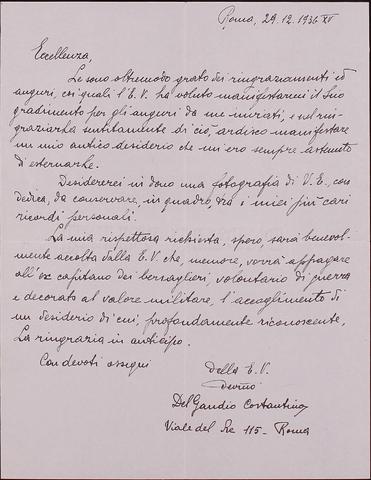 Roma, 29.12.1936 XV
Eccellenza,
Le sono oltremodo grato dei ringraziamenti ed
auguri, coi quali l'E.V. ha voluto manifestarmi il Suo
gradimento per gli auguri da me inviati, e nel rin-
graziarla sentitamente di ciò, ardisco manifestare
un mio antico desiderio che mi ero sempre astenuto
di esternarLe.
Desidererei in dono una fotografia di V.E., con
dedica, da conservare, in quadro, tra i miei più cari
ricordi personali.
La mia rispettosa richiesta, spero, sarà benevol-
mente accolta dalla E.V. che, memore, vorrà appagare
all'ex capitano dei bersaglieri, volontario di guerra
e decorato al valore militare, l'accoglimento di
un desiderio di cui, profondamente riconoscente,
La ringrazia in anticipo.
Con devoti ossequi
Della E.V.
Del Gaudio Costantino
Viale del Re 115 - Roma